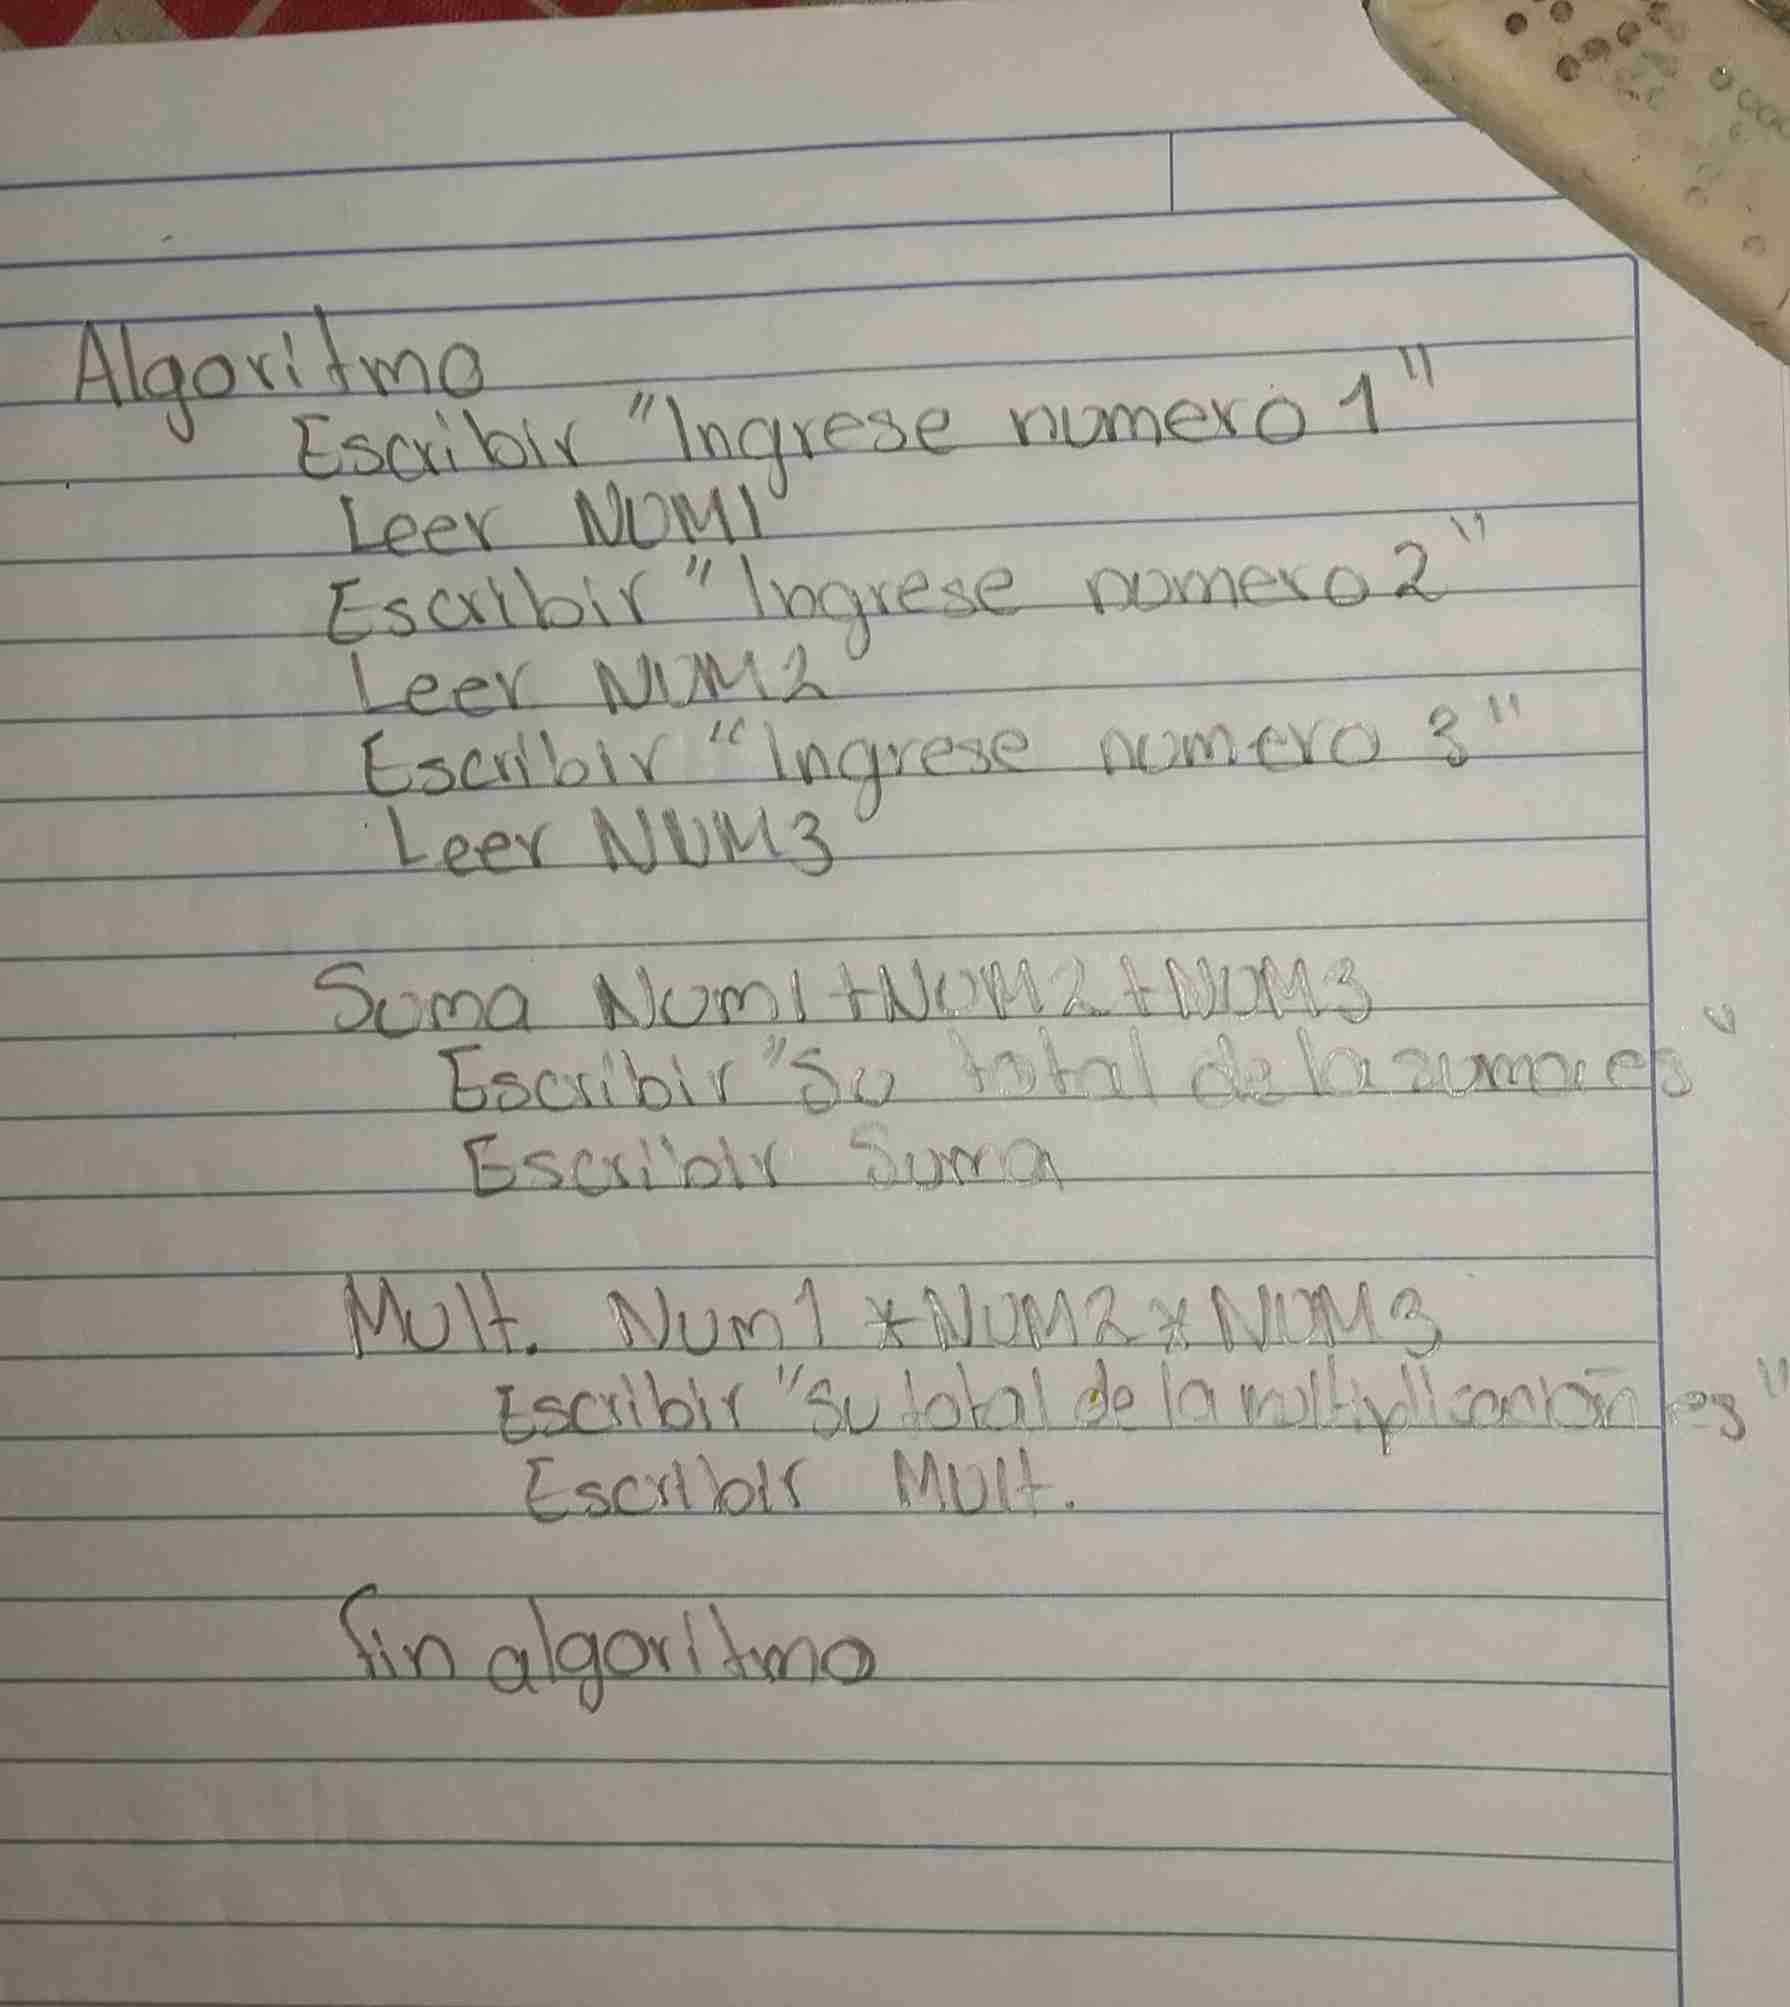 Algoritmo
Escribir "Ingrese numero 1"
Leer NUM1
Escribir "Ingrese numero 2"
Leer NUM2
Escribir "Ingrese numero 3"
Leer NUM3
Suma Num1+NUM2+NUM3
Escribir "Su total de la suma es"
Escribir Suma
Mult. Num1 *NUM2*NUM3
Escribir "Su total de la multiplicación es"
Escribir Mult.
fin algoritmo